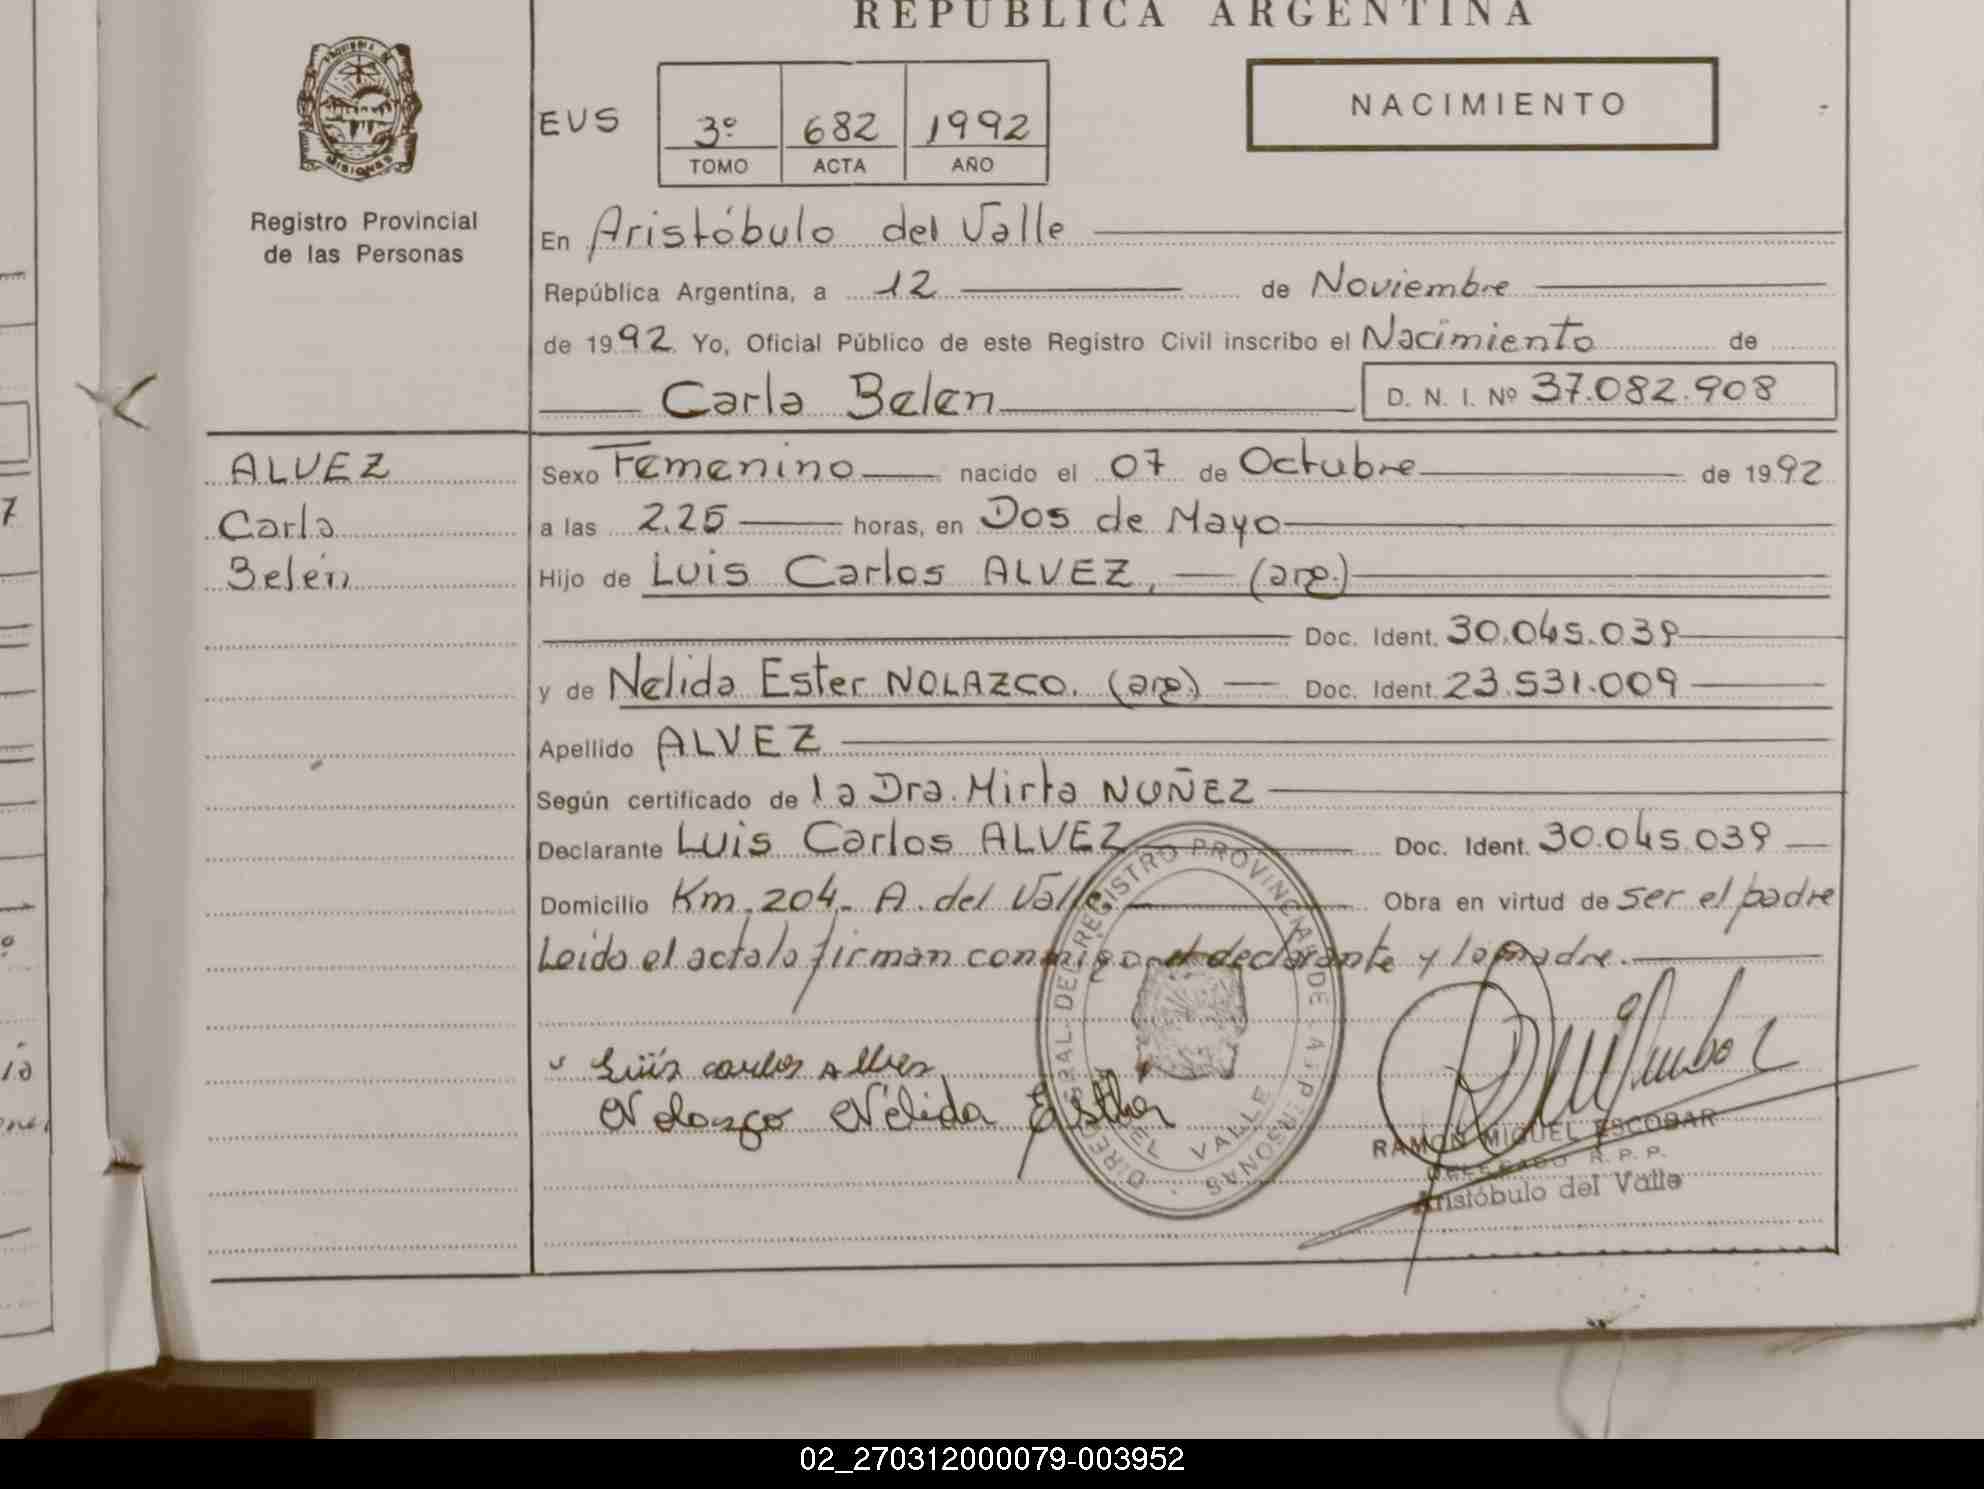 REPUBLICA ARGENTINA
PROVINCIA DE
MISIONES
Registro Provincial
de las Personas
EUS
3º 682 1992
TOMO ACTA AÑO
NACIMIENTO
En Aristóbulo del Valle
República Argentina, a 12 de Noviembre
de 1992 Yo, Oficial Público de este Registro Civil inscribo el Nacimiento de
Carla Belen D. N. I. Nº 37.082.908
ALVEZ
Carla
Belén
Sexo Femenino nacido el 07 de Octubre de 1992
a las 2.25 horas, en Dos de Mayo
Hijo de Luis Carlos ALVEZ, (arg.)
Doc. Ident. 30.045.039
y de Nelida Ester NOLAZCO. (arg) Doc. Ident. 23.531.009
Apellido ALVEZ
Según certificado de la Dra. Mirta NUÑEZ
Declarante Luis Carlos ALVEZ Doc. Ident. 30.045.039
Domicilio Km. 204. A. del Valle. Obra en virtud de ser el padre
Leida el acta la firman conmigo el declarante y la madre.
Luis carlos Alves
Nolazco Nélida Esther
REGISTRO PROVINCIAL DE LAS PERSONAS
DEL VALLE
RAMON MIGUEL ESCOBAR
DELEGADO R. P. P.
Aristóbulo del Valle
02_270312000079-003952